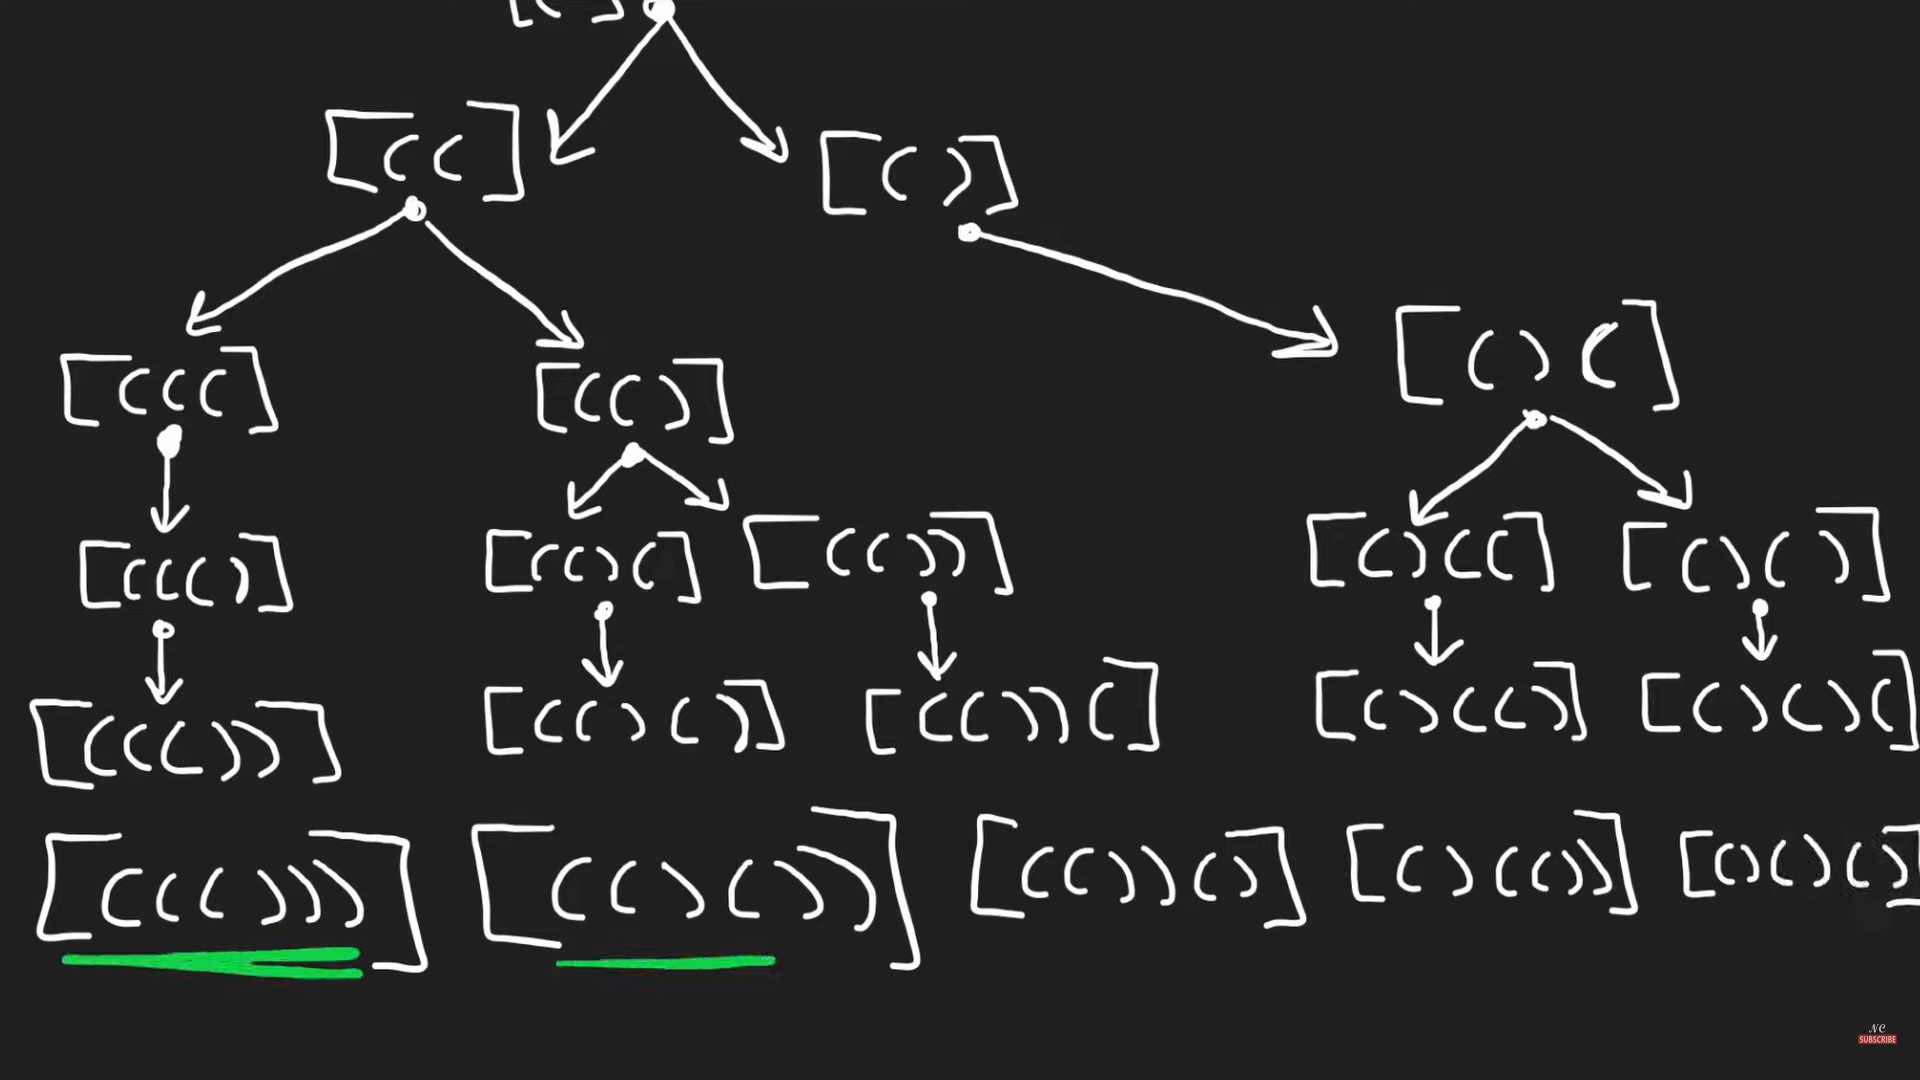 [( ]
[((]
[()]
[(((]
[(()]
[()(]
[((()]
[(()(]
[(())]
[()((]
[()()]
[((())]
[(()()]
[(())(]
[()(()]
[()()(]
[((()))]
[(()())]
[(())()]
[()(())]
[()()()]
NC
SUBSCRIBE